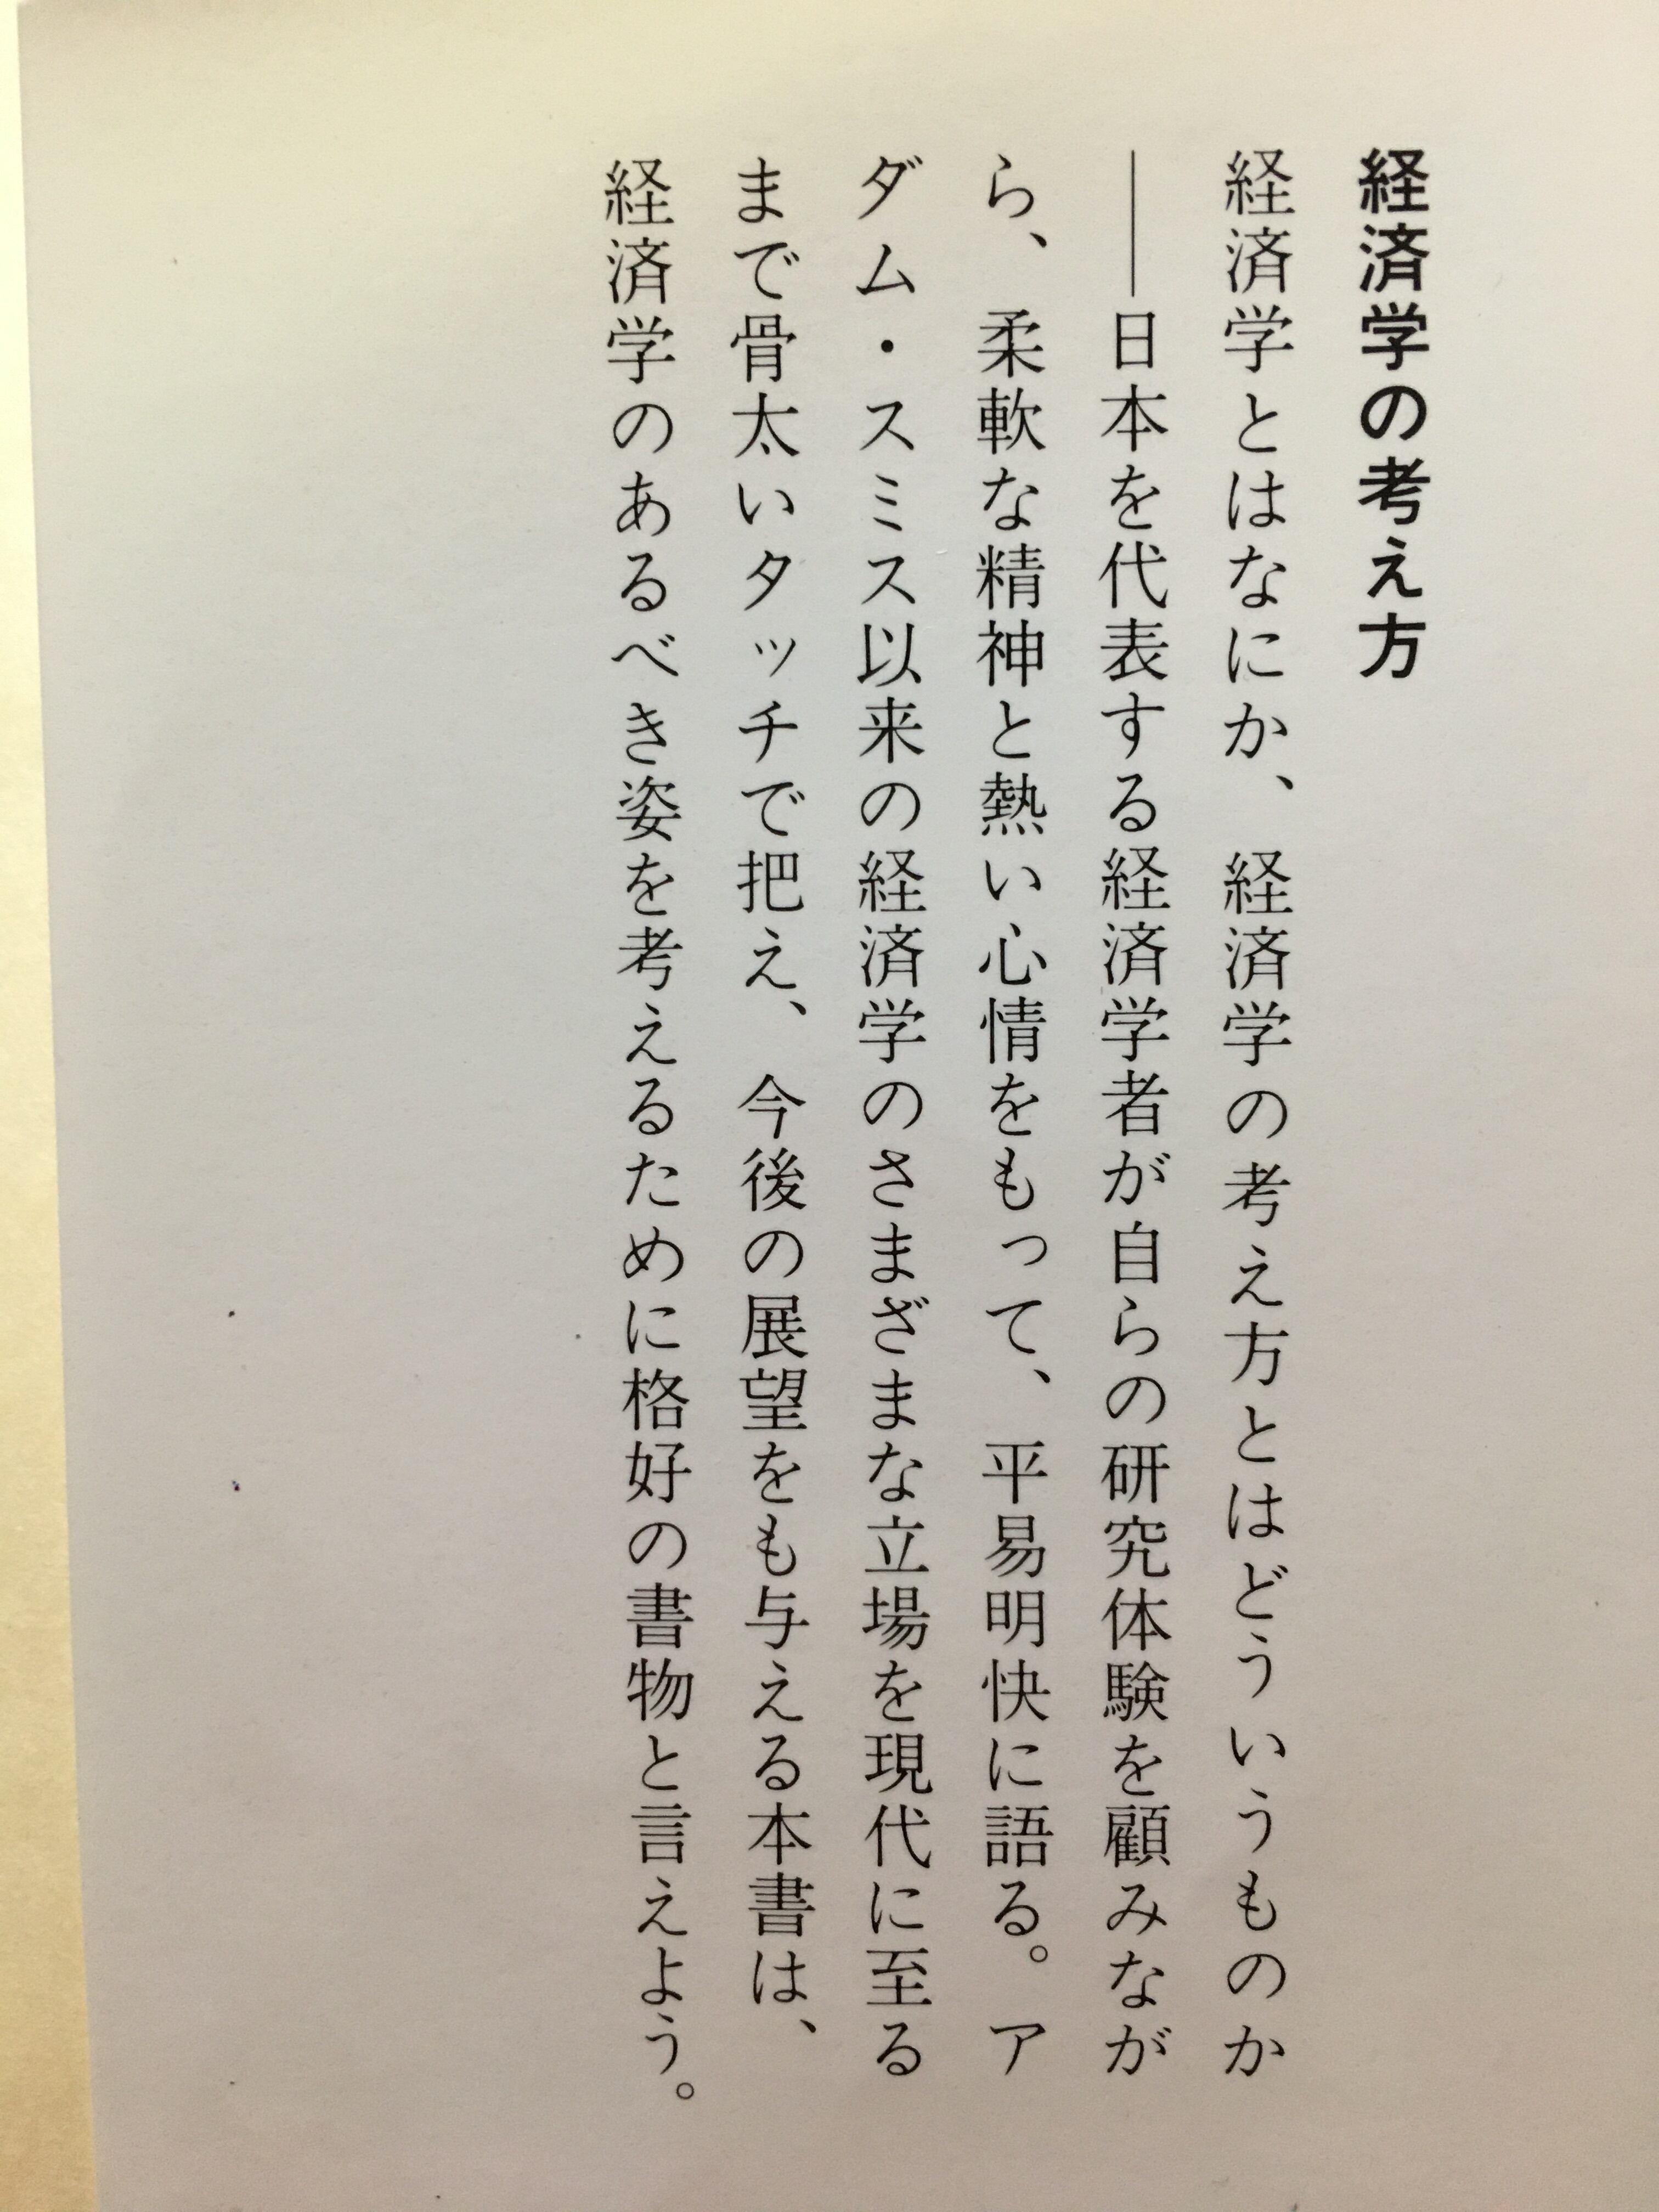 経済学の考え方
経済学とはなにか、経済学の考え方とはどういうものか
――日本を代表する経済学者が自らの研究体験を顧みなが
ら、柔軟な精神と熱い心情をもって、平易明快に語る。ア
ダム・スミス以来の経済学のさまざまな立場を現代に至る
まで骨太いタッチで把え、今後の展望をも与える本書は、
経済学のあるべき姿を考えるために格好の書物と言えよう。